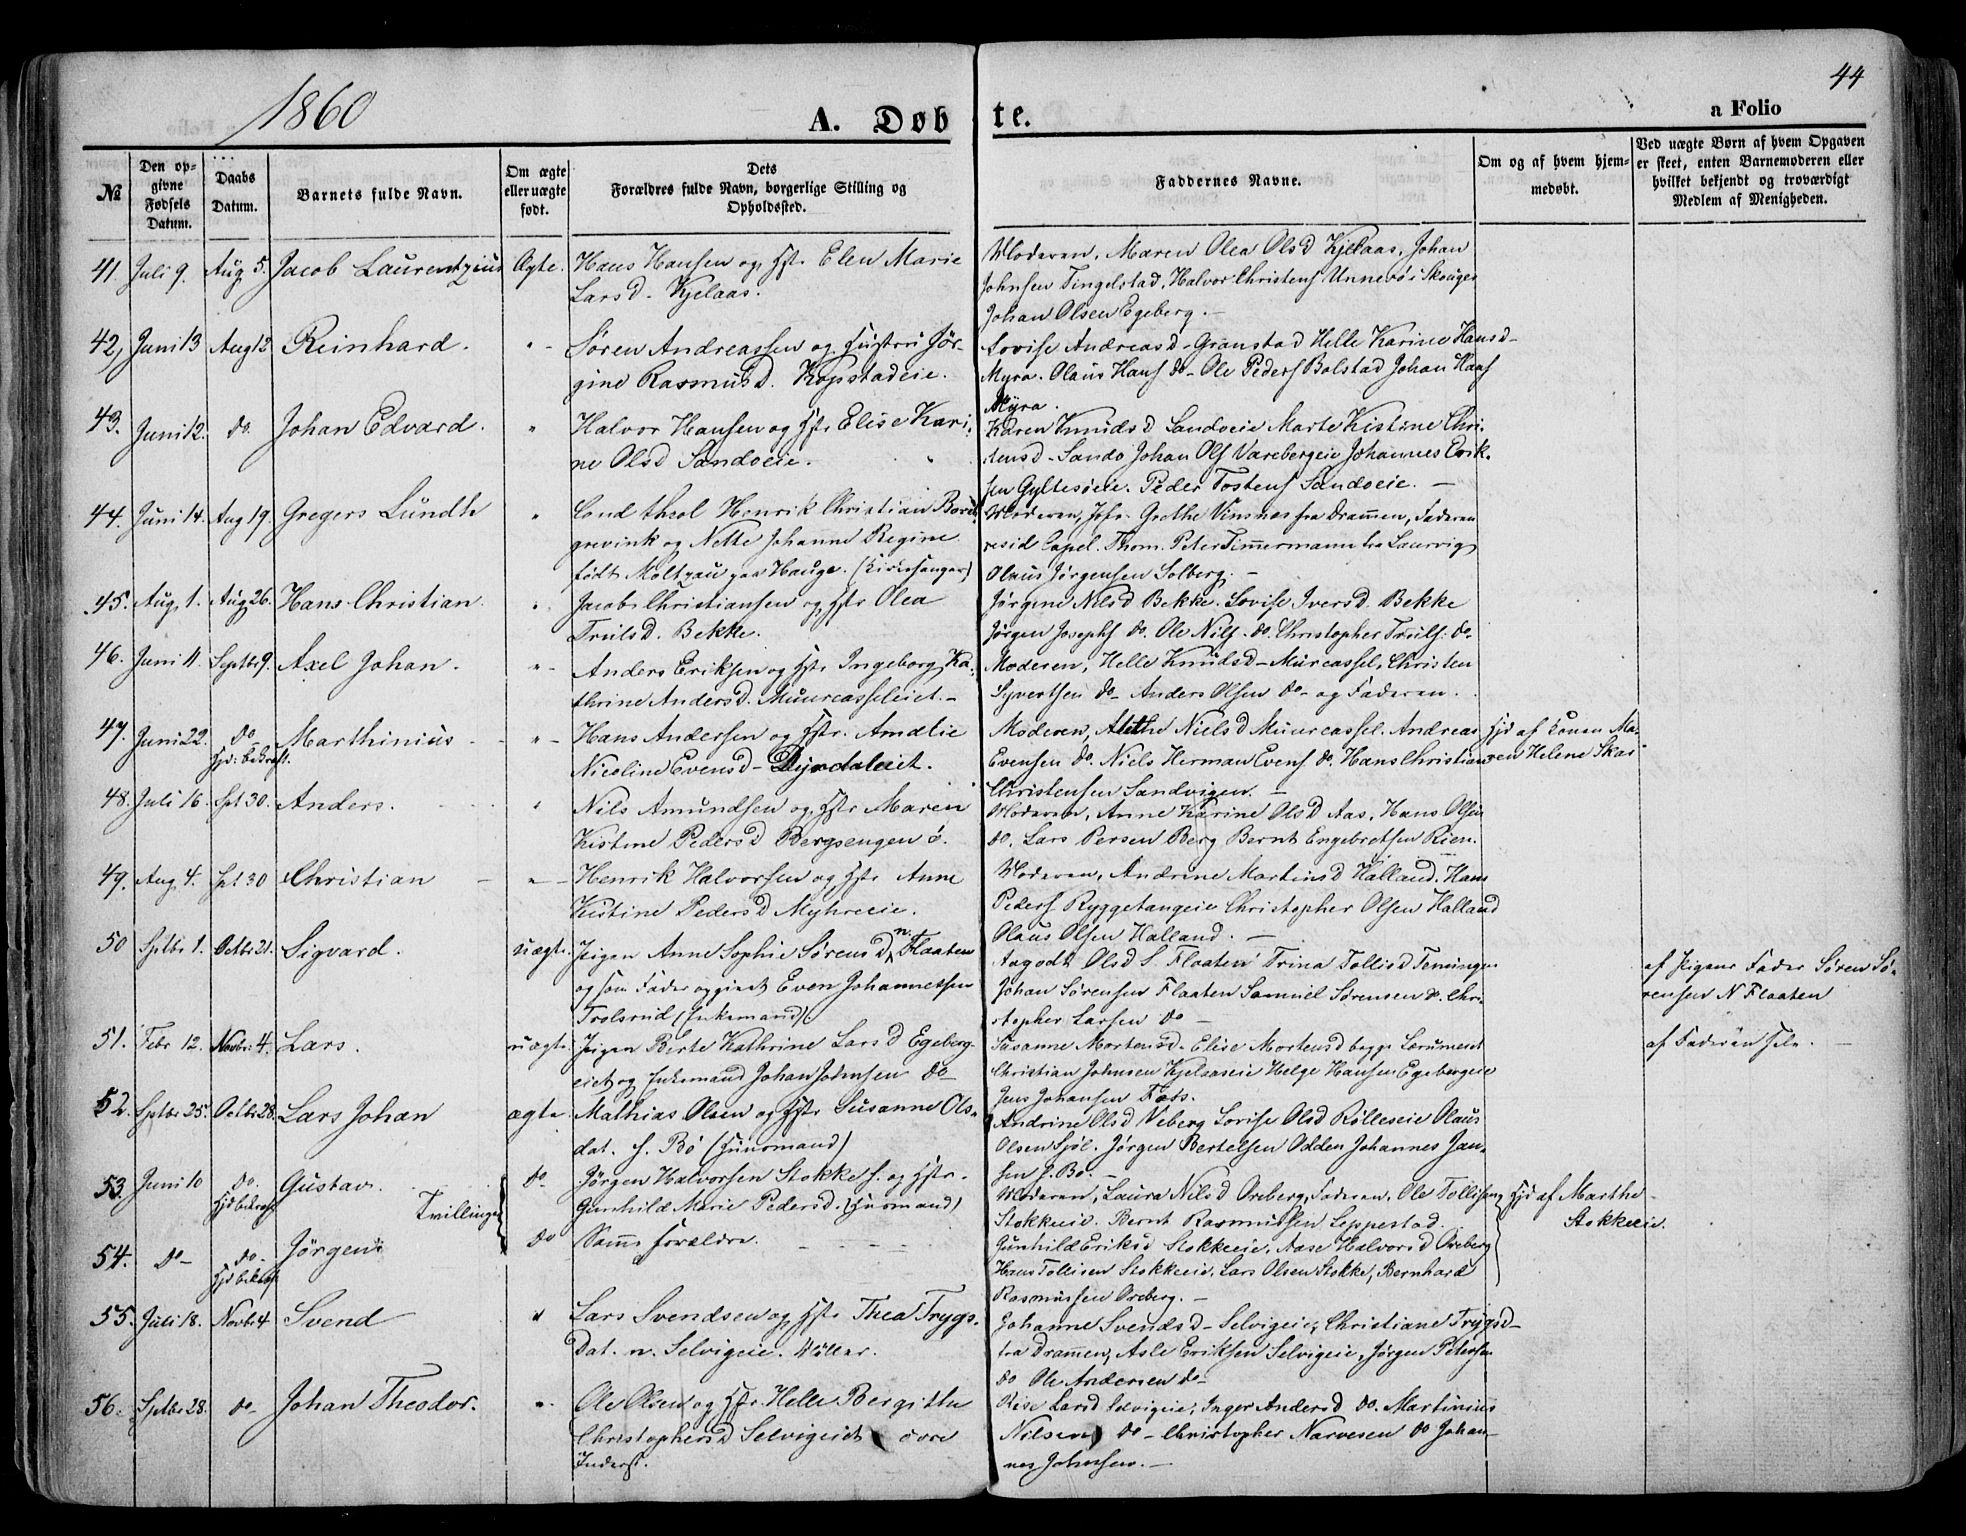 1860
A. Døbte.
44
a Folio
№
Den opgivne Fødsels Datum.
Daabs Datum.
Barnets fulde Navn.
Om ægte eller uægte født.
Dets Forældres fulde Navn, borgerlige Stilling og Opholdssted.
Faddernes Navne.
Om og af hvem hjemmedøbt.
Ved uægte Børn af hvem Opgaven er skeet, enten Barnemoderen eller hvilket bekjendt og troværdigt Medlem af Menigheden.
41. Juli 9. Aug 5. Jacob Laurentzius Ægte. Hans Hansen og Hstr Elen Marie
Larsd. Kjelaas.
Moderen, Maren Olea Olsd Kjelaas, Johan
Johnsen Tingelstad, Halvor Christens Unnerö i Skouger
Johan Olsen Egeberg. -
42, Juni 13 Aug 12 Reinhard. " - Søren Andreassen og Hustru Jør-
gine Rasmusd. Kopstadeie.
Lovise Andreasd - Granstad Helle Karine Hansd -
Myra. Olaus Hans do - Ole Peders Bolstad Johan Haas
Myra.
43. Juni 12. do. Johan Edvard. " Halvor Hansen og Hstr Elise Kari-
ne Olsd Sandoeie.
Karen Knudsd Sandoeie Marte Kistine Chri-
stensd - Sando Johan Ols Varebergeie Johannes Erik-
sen Gyltesöeie. Peder Tostens Sandoeie. -
44. Juni 14. Aug 19. Gregers Lundth " Cand theol Henrik Christian Borch-
grevink og Nette Johanne Regine
født Moltzau paa Hauge. (Kirkesanger)
Moderen, Jofr. Grethe Vinsnes fra Dramen, Faderen
resid Capel. Thom. Peter Timmermann fra Laurvig
Olaus Jørgensen Solberg. -
45. Aug. 1. Aug 26. Hans Christian. " Jacob Christiansen og Hstr Olea
Trulsd. Bekke.
Jørgine Nilsd Bekke. Lovise Iversd. Bekke
Jörgen Josephs do. Ole Nils. do. Christopher Truls: do.
46. Juni 11. Septbr 9. Axel Johan. " - Anders Eriksen og Hstr Ingeborg Ka-
thrine Andersd. Muurcasseleiet. -
Moderen, Helle Knudsd - Murcassel, Christen
Syvertsen do - Anders Olsen do - og Faderen.
47. Juni 22. do Marthinius - " - Hans Andersen og Hstr. Amalie
Hjd: bekræft.
Nicoline Evensd - Dyrdaleiet.
Moderen, Alethe Nielsd Muurcassel. Andreas
Evensen do. Niels Herman Evens do. Hans Christian
Christensen Sandvigen. -
Hjd af Konen Ma-
ren Helene Skar
48. Juli 16. Spt 30. Anders. " Nils Amundsen og Hstr Maren
Kistine Pedersd Bergsengen ö.
Moderen, Anne Karine Olsd Aas, Hans Olsen
do, Lars Persen Berg Bernt Engebretsen Rien.
49. Aug 4. Spt 30 Christian - " - Henrik Halvorsen og Hstr Anne
Kistine Pedersd Myhreeie.
Moderen, Andrine Martinsd Halland. Hans
Peders Ryggetangeie Christopher Olsen Halland
Olaus Olsen Halland. -
50 Sptbr 1. Octbr 21. Sigvard. uægte. Pigen Anne Sophie Sørensd n. Flaaten
og som Fader opgivet Even Johannessen
Trolsrud (Enkemand).
Aagodt Olsd S. Flaaten Trina Tollisd Teninge
Johan Sørensen Flaaten Samuel Sørensen do. Chri-
stopher Larsen do -
af Pigens Fader Søren Sø-
rensen N Flaaten
51. Febr 12. Novbr. 4. Lars. uægte. Pigen Berte Kathrine Larsd Egeberg-
eiet og Enkemand Johan Johnsen do -
Susanne Mortensd. Elise Mortensd begge Lerumeiet
Christian Johnsen Kjelaaseie Helge Hansen Egebergeie
Jens Johansen Foss.
af Faderen selv. -
52. Sptbr 25. Octbr 28. Lars Johan ægte. Mathias Olsen og Hstr Susanne Ols-
dat. s. Bö (Huusmand)
Andrine Olsd Veberg Lovise Olsd Rölleseie Olaus
Olsen Sjöl. Jørgen Bertelsen Odden Johannes Jan-
sen s. Bö. -
53. Juni 10 do. Gustav. do - Jørgen Halvorsen Stokke s. og Hstr.
Hjd bekræft
Tvillinger
Gunhild Marie Pedersd. (Husmand)
Moderen, Laura Nilsd Oreberg, Faderen, Ole Tollisen
Stokkeeie. Bernt Rasmussen Leppestad.
Hjd af Marthe
Stokkeeie.
54. do - do - Jörgen do Samme Forældre.
Hjd bekræft
Gunhild Eriksd Stokkeeie. Aase Halvorsd Oreberg
Hans Tollisen Stokkeeie. Lars Olsen Stokke, Bernhard
Rasmussen Oreberg. -
55. Juli 18. Novbr 4 Svend " Lars Svendsen og Hstr Thea Trygs-
Dat. n. Selvigeie.
Johanne Svendsd - Selvigeie, Christiane Trygsd -
fra Dramen, Asle Eriksen Selvigeie, Jørgen Petersen
do Ole Andersen do -
56. Sptbr 28. do - Johan Theodor. " - Ole Olsen og Hstr Helle Bergitha
Christophersd Selvigeiet övre
Inderst.
Rise Larsd Selvigeie, Inger Andersd do. Martinius
Nilsen do - Christopher Narvesen do Johan-
nes Johnsen. -